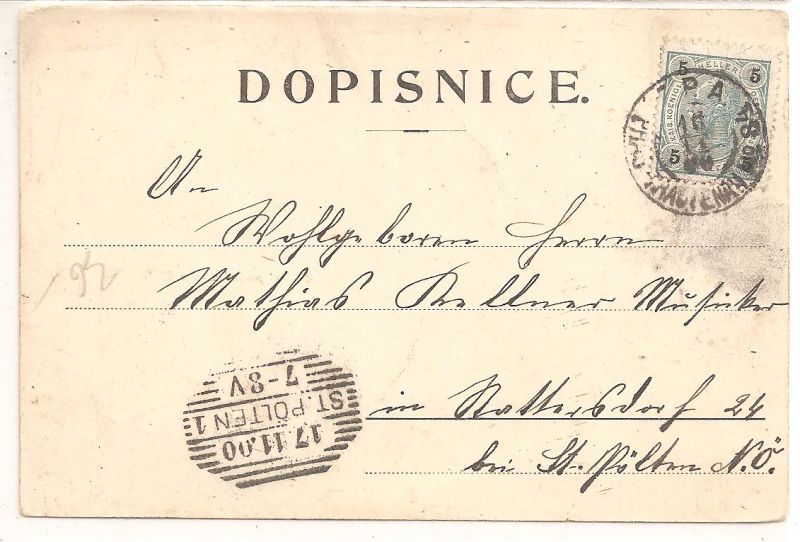 DOPISNICE.
KAIS. KOENIGL.
HELLER
5 5
5
An
Wohlgeboren Herrn
Mathias Kellner Musiker
92
in Stattersdorf 24
bei St. Pölten N.Ö.
17.11.00
ST. PÖLTEN 1
7-8V